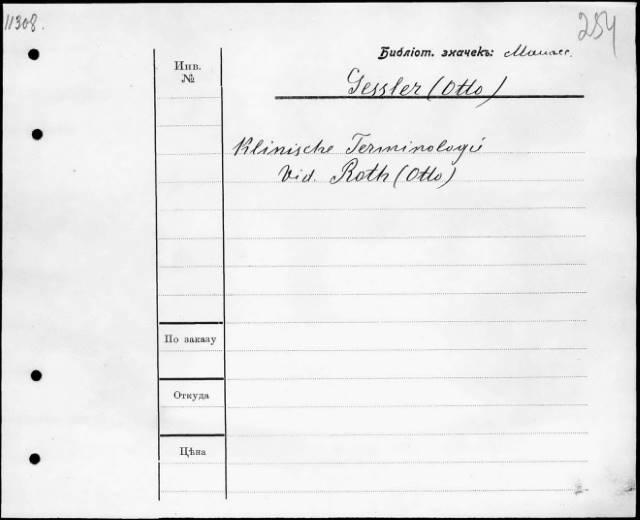 11308.
254
Библіот. значекъ: Манасс.
Инв.
№
Gessler (Otto)
Klinische Terminologie
Vid. Roth (Otto)
По заказу
Откуда
Цѣна